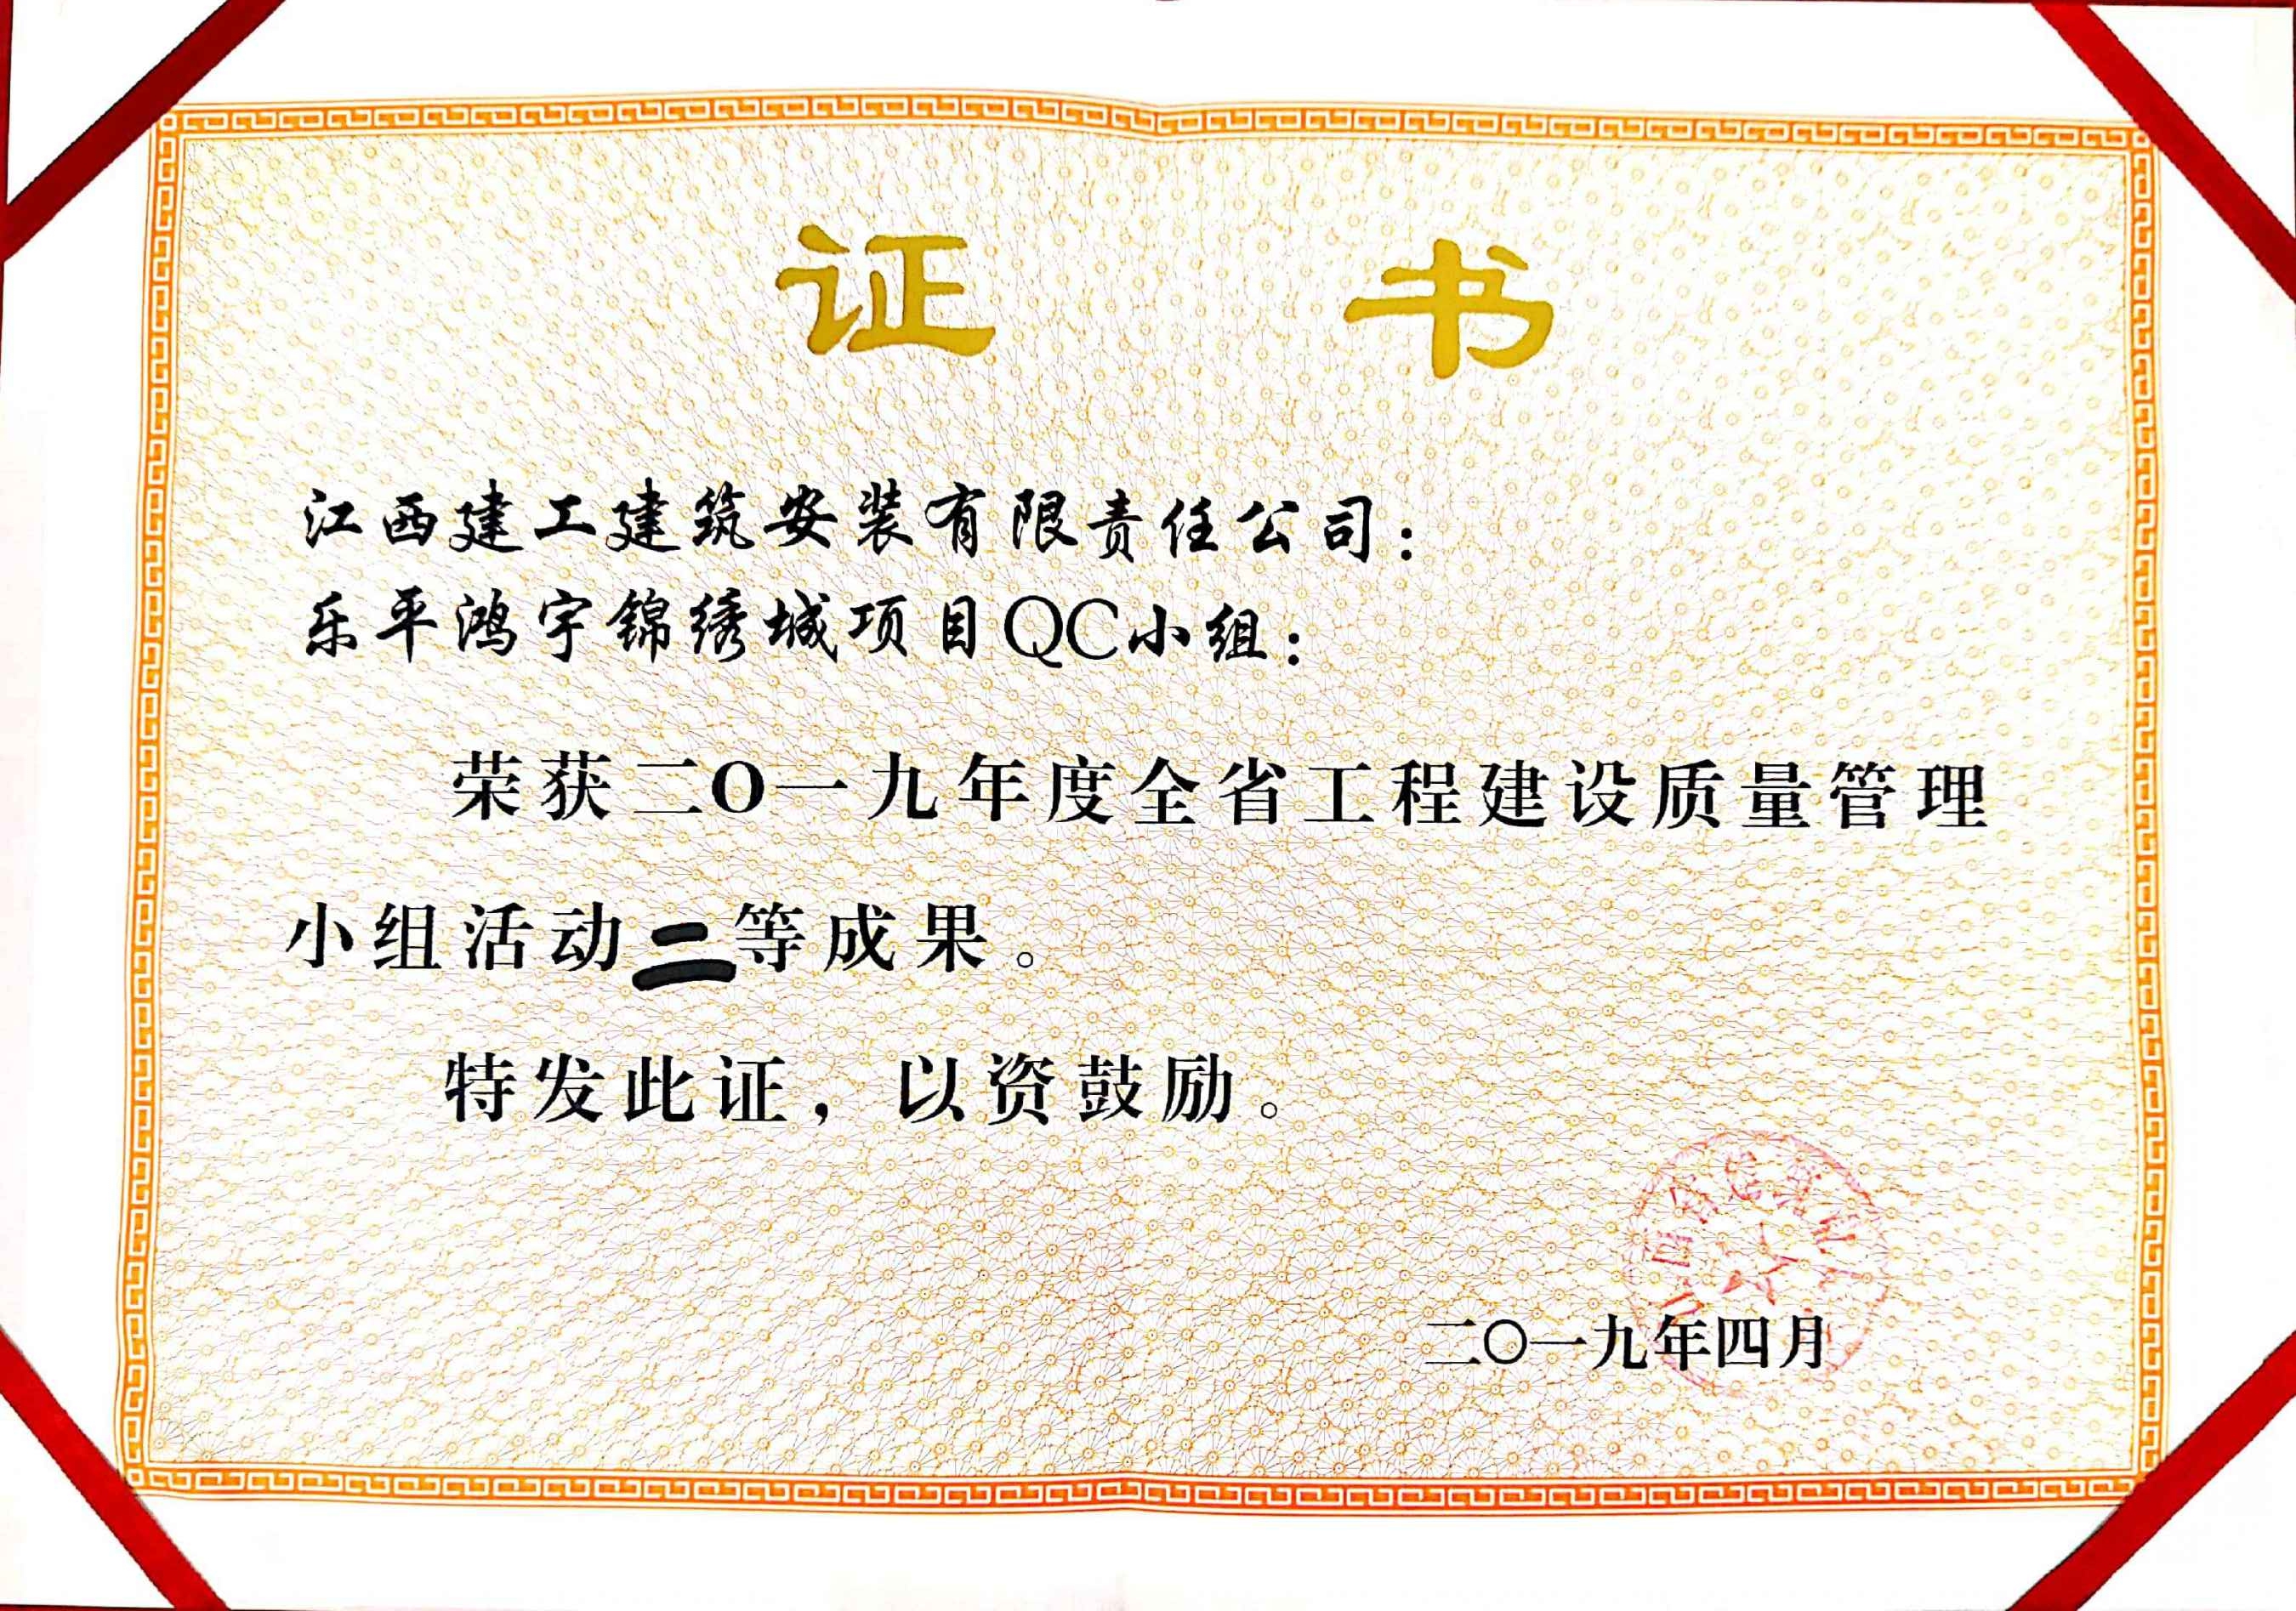 证 书
江西建工建筑安装有限责任公司：
乐平鸿宇锦绣城项目QC小组：
荣获二O一九年度全省工程建设质量管理
小组活动二等成果。
特发此证，以资鼓励。
二〇一九年四月